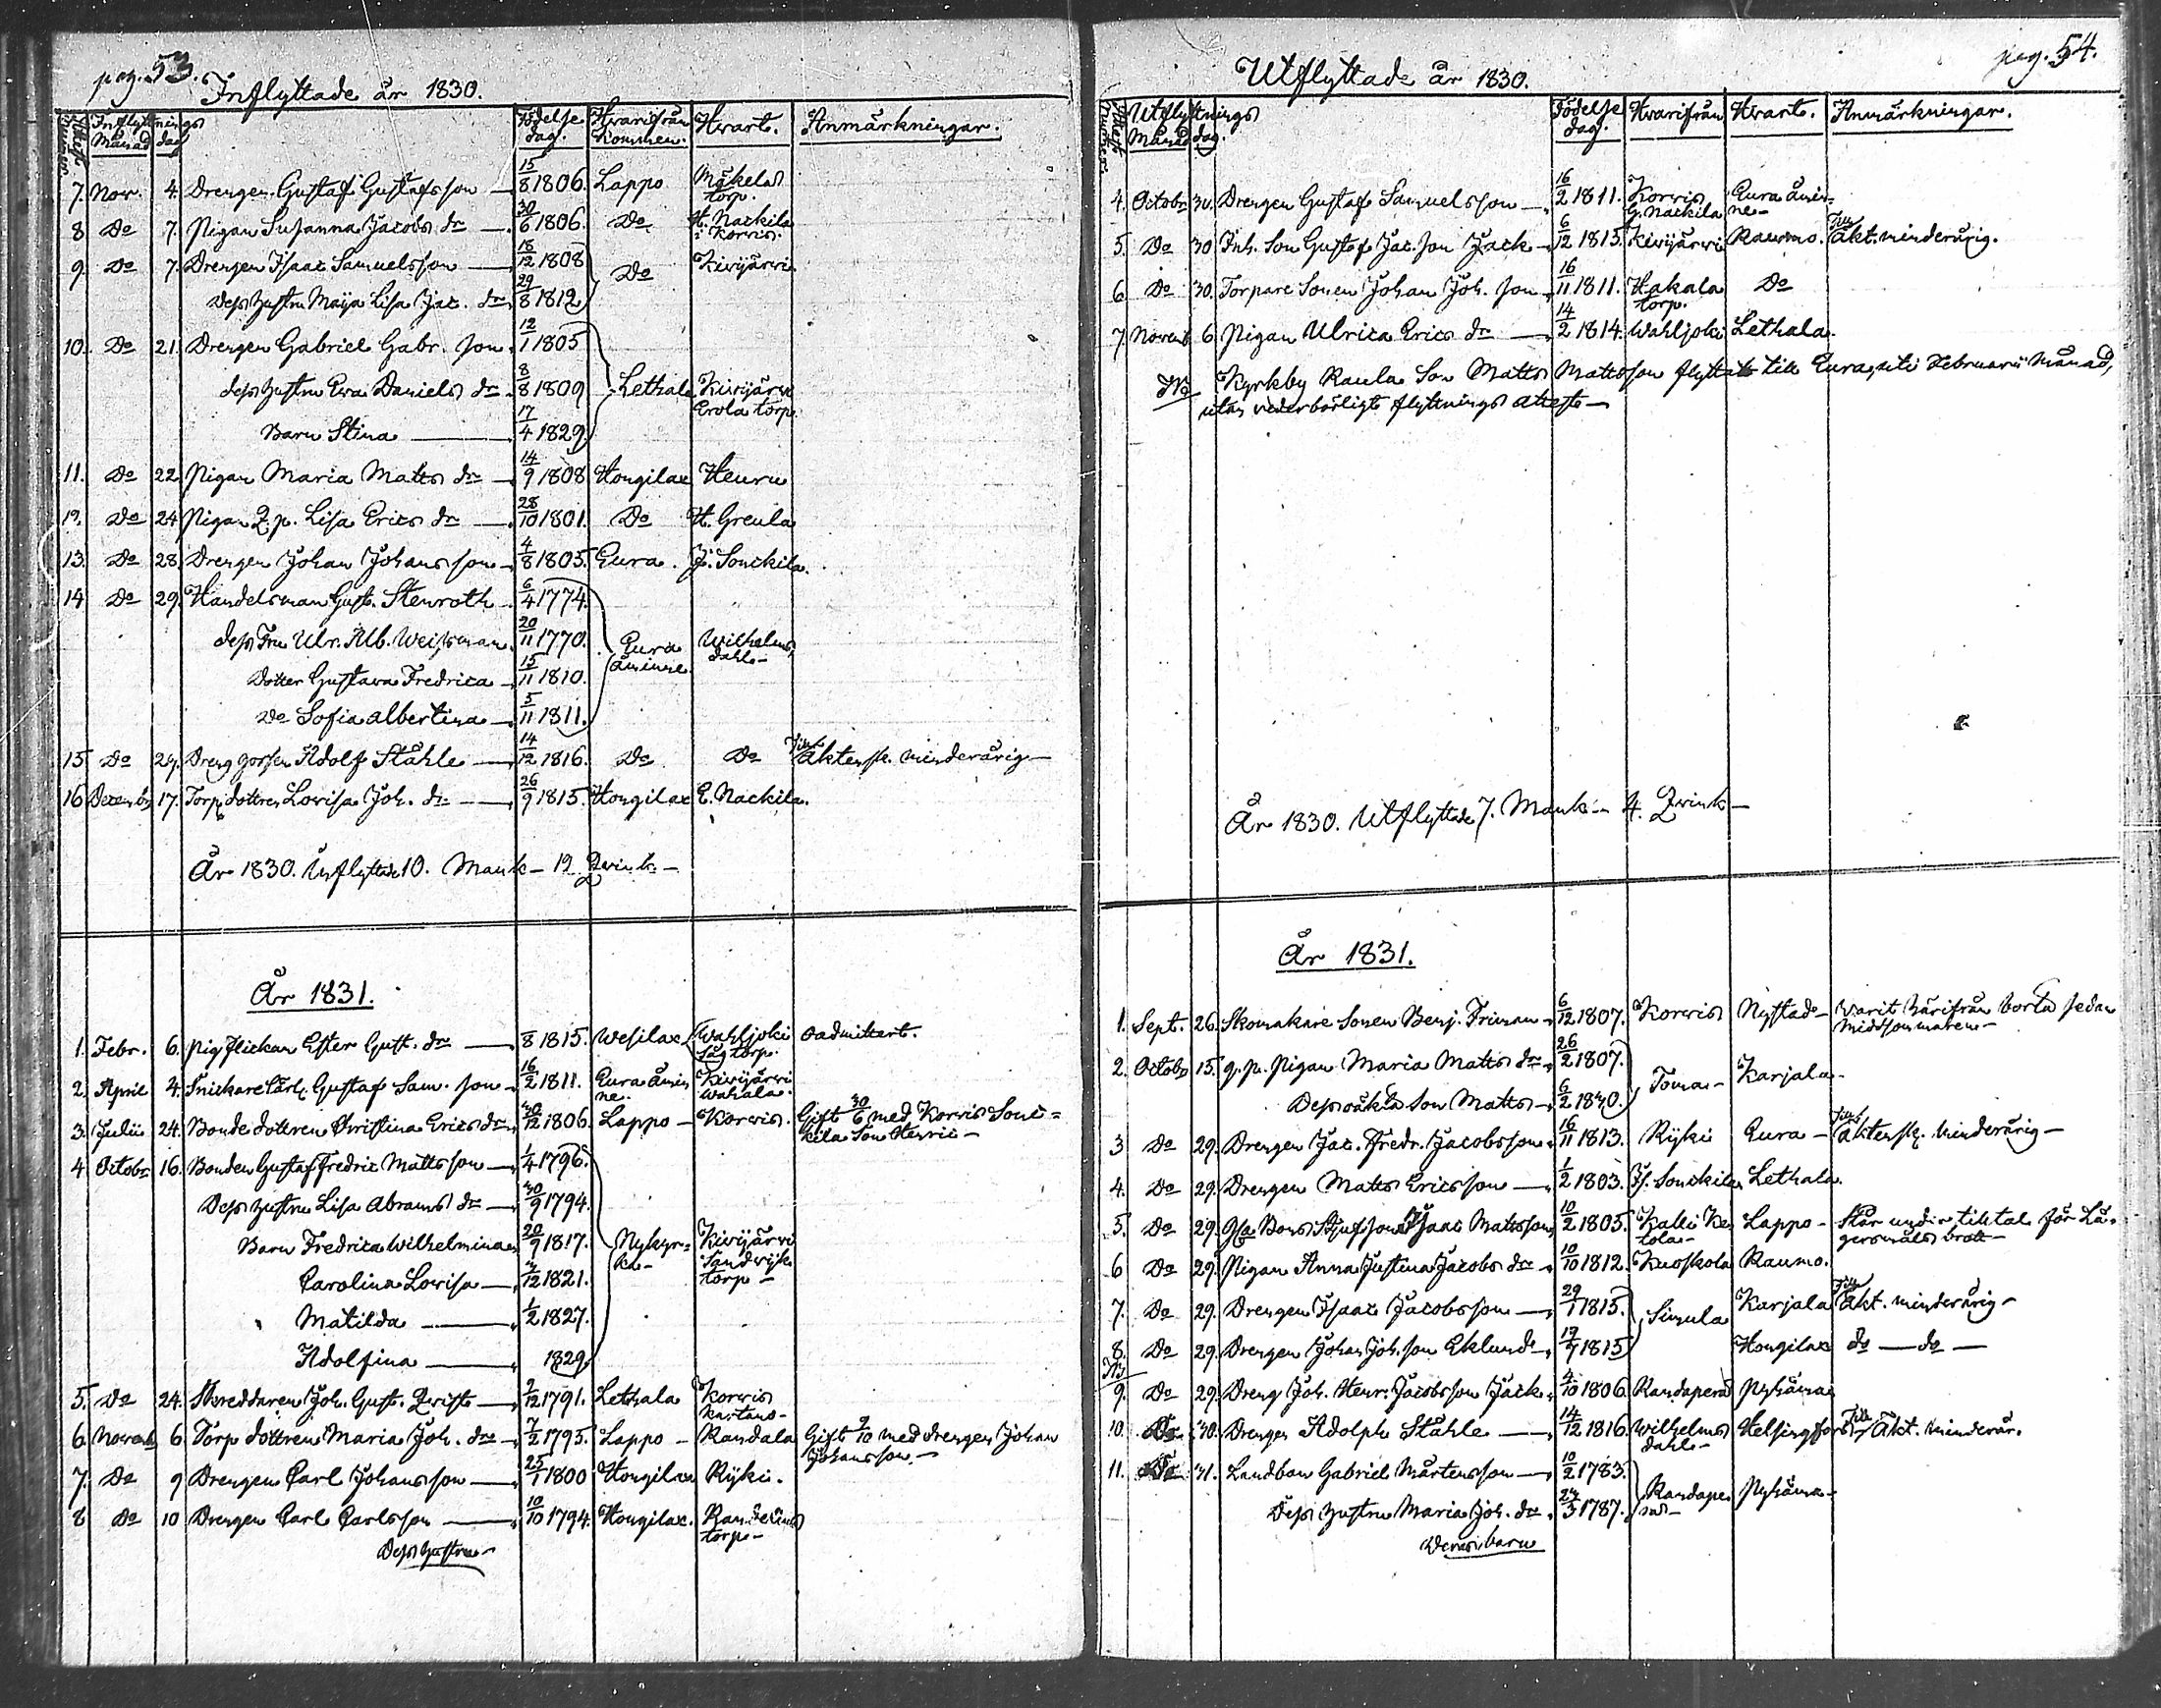 pag. 53.
Inflyttade år 1830.
Inflyttnings
Månad dag
Födelse dag. Hvarifrån Kommen. Hvart. Anmärkningar.
7. Nov. 4. Drengen Gustaf Gustafsson — 15/8 1806. Lappo Mäkelä torp.
8 Do 7. Pigan Susanna Jacobs dr — 30/6 1806. Do H. Nackila i Korvis.
9. Do 7. Drengen Isaac Samuelsson — 15/12 1808 Do Kivijärvi
Dess hustru Maija Lisa Jac. dr 29/8 1812
10. Do 21. Drengen Gabriel Gabr. son 12/1 1805
dess hustru Eva Daniels dr 8/8 1809 Lethala Kivijärvi
Erola torp.
Barn Stina — 17/4 1829
11. Do 22 Pigan Maria Matts dr — 14/9 1808 Hongilax Heuru
12. Do 24 Pigan Q. p. Lisa Erics dr — 28/10 1801. Do H. Greula
13. Do 28. Drengen Johan Johansson 4/8 1805. Eura. J. Sonckila.
14 Do 29. Handelsman Gust. Stenroth 6/4 1774.
dess Fru Ulr. Alb. Weissman 20/11 1770. Eura Wilhelms
åminne. dahl —
Dotter Gustava Fredrica 15/11 1810.
Do Sofia Albertina 5/11 1811.
15 Do 29. Dreng gossen Adolf Ståhle — 14/12 1816. Do Do Till Äktensk. minderårig —
16 Decemb 17. Torp dottren Lovisa Joh. dr — 26/9 1815. Hongilax E. Nackila.
År 1830. Inflyttade 10. Mank — 12 Qvink. —
År 1831.
1. Febr. 6. Pigflickan Ester Gust. dr — /8 1815. Wesilax Wahljoki oadmittert.
torp.
2. April 4. Snickare Gustaf Sam. son 16/2 1811. Eura åmin Kivijärvi
ne. Wahala.
3. Julii 24. Bonde dottren Christina Erics dr 30/12 1806. Lappo — Korvis. Gift 30/6 med Korvis Sonc=
kila Son Henric —
4 Octobr 16. Bonden Gustaf Fredric Mattsson 1/4 1796.
Dess hustru Lisa Abrams dr 30/9 1794.
Barn Fredrica Wilhelmina 20/9 1817. Nykyr= Kivijärvi
ka — Sandvik
Carolina Lovisa — /12 1821. torp —
Matilda — 1/2 1827.
Adolfina — 1829.
5. Do 24. Skreddaren Joh. Gust. Qvist — 2/12 1791. Lethala Korvis
Kartano —
6. Novemb 6. Torp dottren Maria Joh. dr 7/2 1795. Lappo — Randala Gift 2/10 med drengen Johan
Johansson —
7. Do 9 Drengen Carl Johansson — 25/1 1800 Hongilax Rijki.
8 Do 10 Drengen Carl Carlsson — 10/10 1794. Hongilax.
torp —
Dess hustru —
pag. 54.
Utflyttade år 1830.
Utflyttnings
Månad dag.
Födelse dag. Hvarifrån Hvart. Anmärkningar.
4. Octobr 30. Drengen Gustaf Samuelsson — 16/2 1811. Korvis Eura åmin=
G. Nackila ne —
5. Do 30 Inh. Son Gustaf Jac. son Jack 6/12 1815. Kivijärvi Raumo. Till Äkt. minderårig.
6 Do 30. Torpare Sonen Johan Joh. son 16/11 1811. Hakala Do
torp.
7. Novemb 6. Pigan Ulrica Erics dr — 14/2 1814. Wahljoki Lethala.
NB Kyrkby Raula Son Matts Mattsson flyttat till Eura uti Februarii Månad,
utan vederbörligt flyttnings attest —
År 1830. Utflyttade 7. Mank — 4. Qvink —
År 1831.
1. Sept. 26. Skomakare Sonen Benj. Friman 6/12 1807. Korvis Nystad — Warit härifrån borta sedan
Middsommaren —
2. Octobr 15. q. p. Pigan Maria Matts dr 26/2 1807. Toma — Karjala.
Dess oäkta Son Matts 6/2 1830.
3 Do 29. Drengen Jac. Fredr. Jacobsson 16/11 1813. Rijki Eura — Till Äktensk. minderårig —
4. Do 29. Drengen Matts Ericsson — 1/2 1803. J. Sonckila Lethala.
5. Do 29. Gla Bond Stjufson Isaac Mattsson 10/2 1805. Kalli Ke Lappo — Står under tiltal för Lä=
tola — gersmåls brott —
6 Do 29. Pigan Anna Justina Jacobs dr 10/10 1812. Kuoskola Raumo.
7. Do 29. Drengen Isaac Jacobsson — 29/1 1815. Simula Karjala Till Äkt. minderårig —
8. Do 29. Drengen Johan Joh. son Eklund 17/7 1815 Hongilax do — do —
NB
9. Do 29. Dreng Joh. Henr. Jacobsson Jack 4/10 1806. Randaperä Pyhäma
10. Do 30. Drengen Adolph Ståhle — 14/12 1816. Wilhelms Helsingfors Till Äkt. minderår.
dahl —
11. Do 31. Landbon Gabriel Mårtensson — 10/2 1783. Randape Pyhäma —
rä —
Dess hustru Maria Joh. dr 1787.
Deras barn